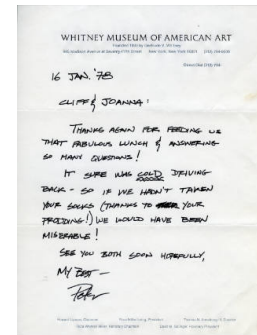 WHITNEY MUSEUM OF AMERICAN ART
16 JAN. '78
CLIFF & JOANNA:
THANKS AGAIN FOR FEEDING US
THAT FABULOUS LUNCH & ANSWERING
SO MANY QUESTIONS!
IT SURE WAS COLD DRIVING
BACK – SO IF WE HADN'T TAKEN
YOUR SOCKS (THANKS TO YOUR
PRODDING!) WE WOULD HAVE BEEN
MISERABLE!
SEE YOU BOTH SOON HOPEFULLY,
MY BEST –